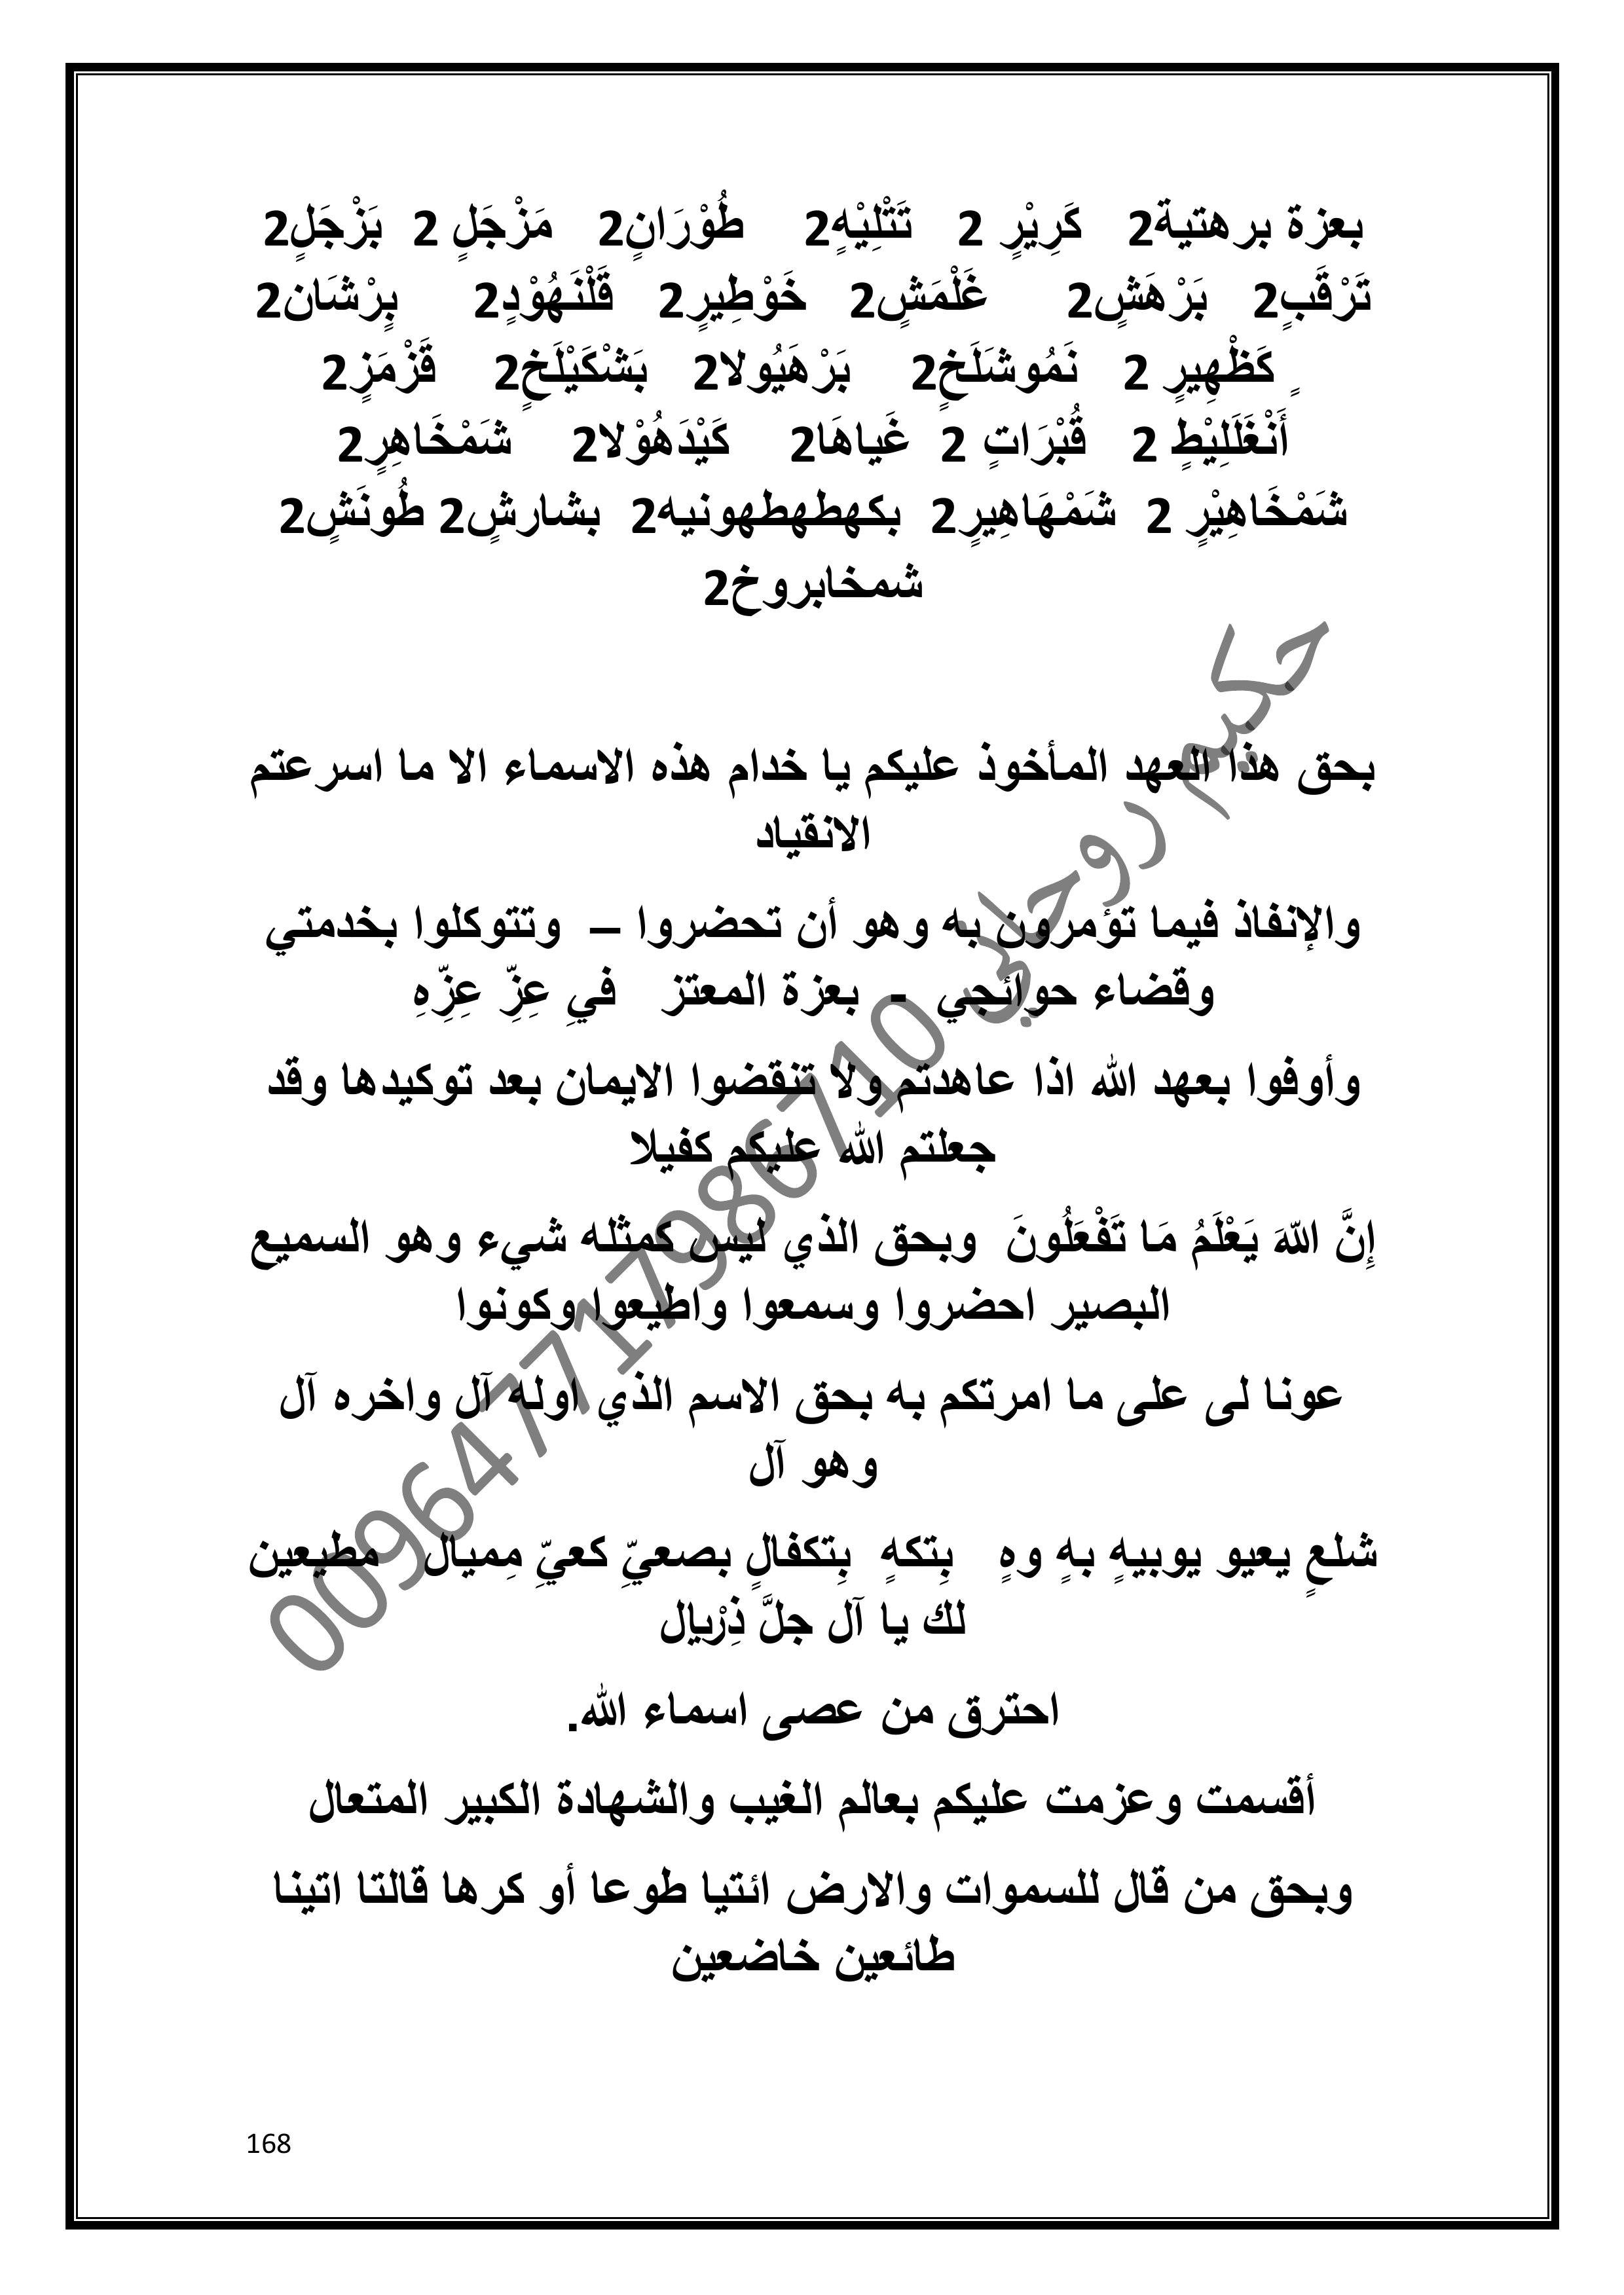 بعزة برهتية2 كَرِيْرٍ 2 تَتْلِيْهٍ2 طُوْرَانٍ2 مَزْجَلٍ 2 بَزْجَلٍ2
تَرْقَبٍ2 بَرْهَشٍ2 غَلْمَشٍ2 خَوْطِيرٍ2 قَلْنَهُوْدٍ2 بٍرْشَان2
ٍ كَظْهِيرٍ 2 نَمُوشَلَخٍ2 بَرْهَيُولا2 بَشْكَيْلَخٍ2 قَزْمَزٍ2
أَنْغَلَلِيْطٍ 2 قُبْرَاتٍ 2 غَياهَا2 كَيْدَهُوْلا2 شَمْخَاهِرٍ2
شَمْخَاهِيْرٍ 2 شَمْهَاهِيرٍ2 بكهطهطهونيه2 بشارشٍ2 طُونَشٍ2
شمخابروخ2
بحق هذا العهد المأخوذ عليكم يا خدام هذه الاسماء الا ما اسرعتم
الانقياد
والإنفاذ فيما تؤمرون به وهو أن تحضروا – وتتوكلوا بخدمتي
وقضاء حوائجي - بعزة المعتز فيِ عِزِّ عِزِّهِ
وأوفوا بعهد الله اذا عاهدتم ولا تنقضوا الايمان بعد توكيدها وقد
جعلتم الله عليكم كفيلا
إِنَّ اللّهَ يَعْلَمُ مَا تَفْعَلُونَ وبحق الذي ليس كمثله شيء وهو السميع
البصير احضروا وسمعوا واطيعوا وكونوا
عونا لى على ما امرتكم به بحق الاسم الذي اوله آل واخره آل
وهو آل
شلعٍ يعيو يوبيهٍ بهٍ وهٍ بِتكهٍ بِتكفالٍ بصعيِّ كعيِّ مِميال مطيعين
لك يا آل جلَّ ذِرْيال
احترق من عصى اسماء الله.
أقسمت وعزمت عليكم بعالم الغيب والشهادة الكبير المتعال
وبحق من قال للسموات والارض ائتيا طوعا أو كرها قالتا اتينا
طائعين خاضعين
حكيم روحاني 009647717986710
168